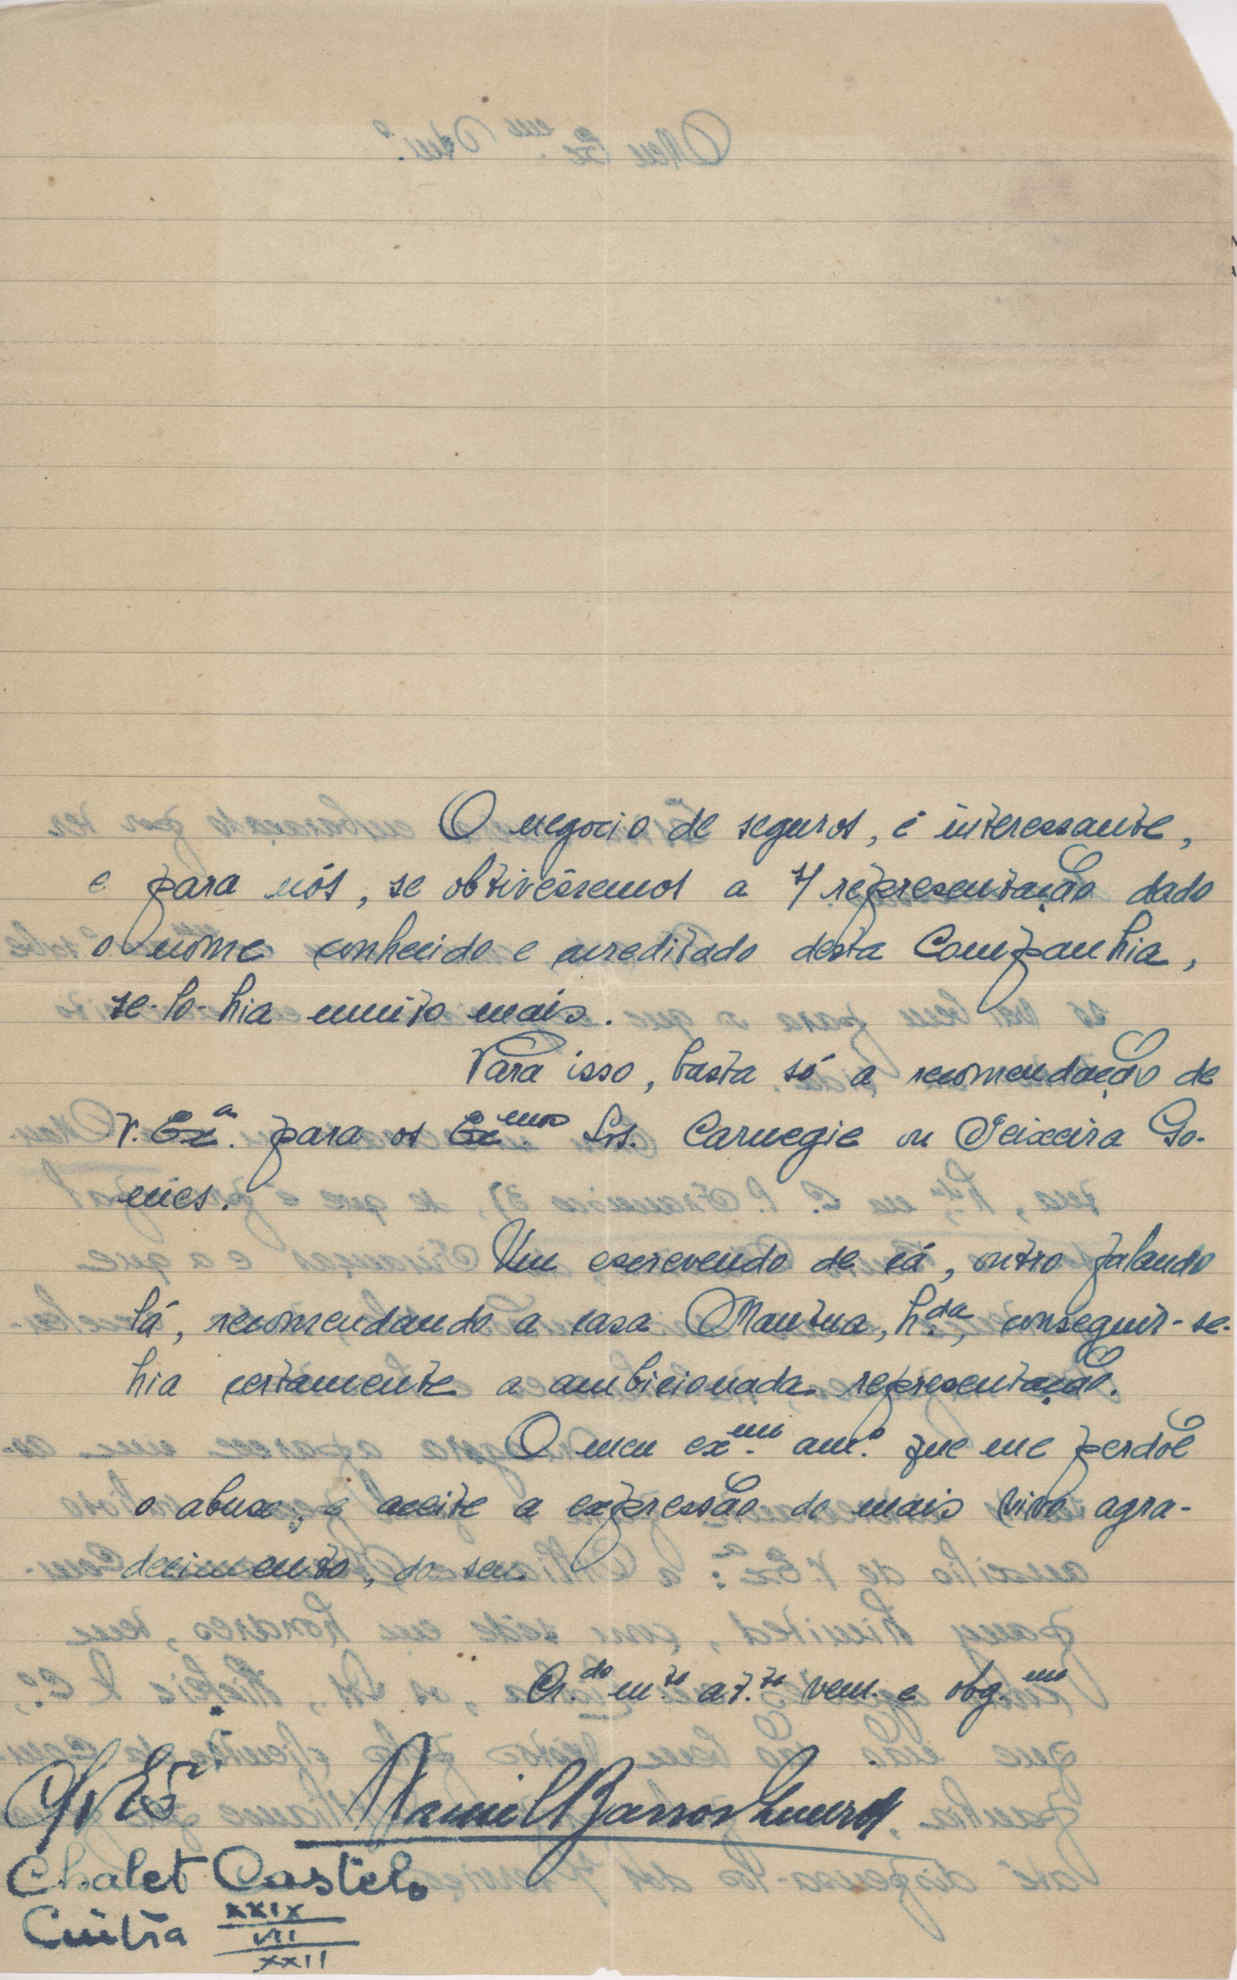 O negocio de seguros, é interessante,
e para nós, se obtivéssemos a representação dado
o nome conhecido e acreditado desta Companhia,
se-lo-hia muito mais.
Para isso, basta só a recomendação de
V. Exª. para os Exmos Srs. Carnegie ou Teixeira Go-
mes.
Um escrevendo de cá, outro falando
lá, recomendando a casa Mantua, L.da, conseguir-se-
hia certamente a ambicionada representação.
O meu ex.mo am.º que me perdôe
o abuso, e aceite a expressão do mais vivo agra-
decimento, do seu
Cr.do m.to at.to ven. e obg.mo
Barros
Chalet Castelo
Cintra XXIX
VII
XXII